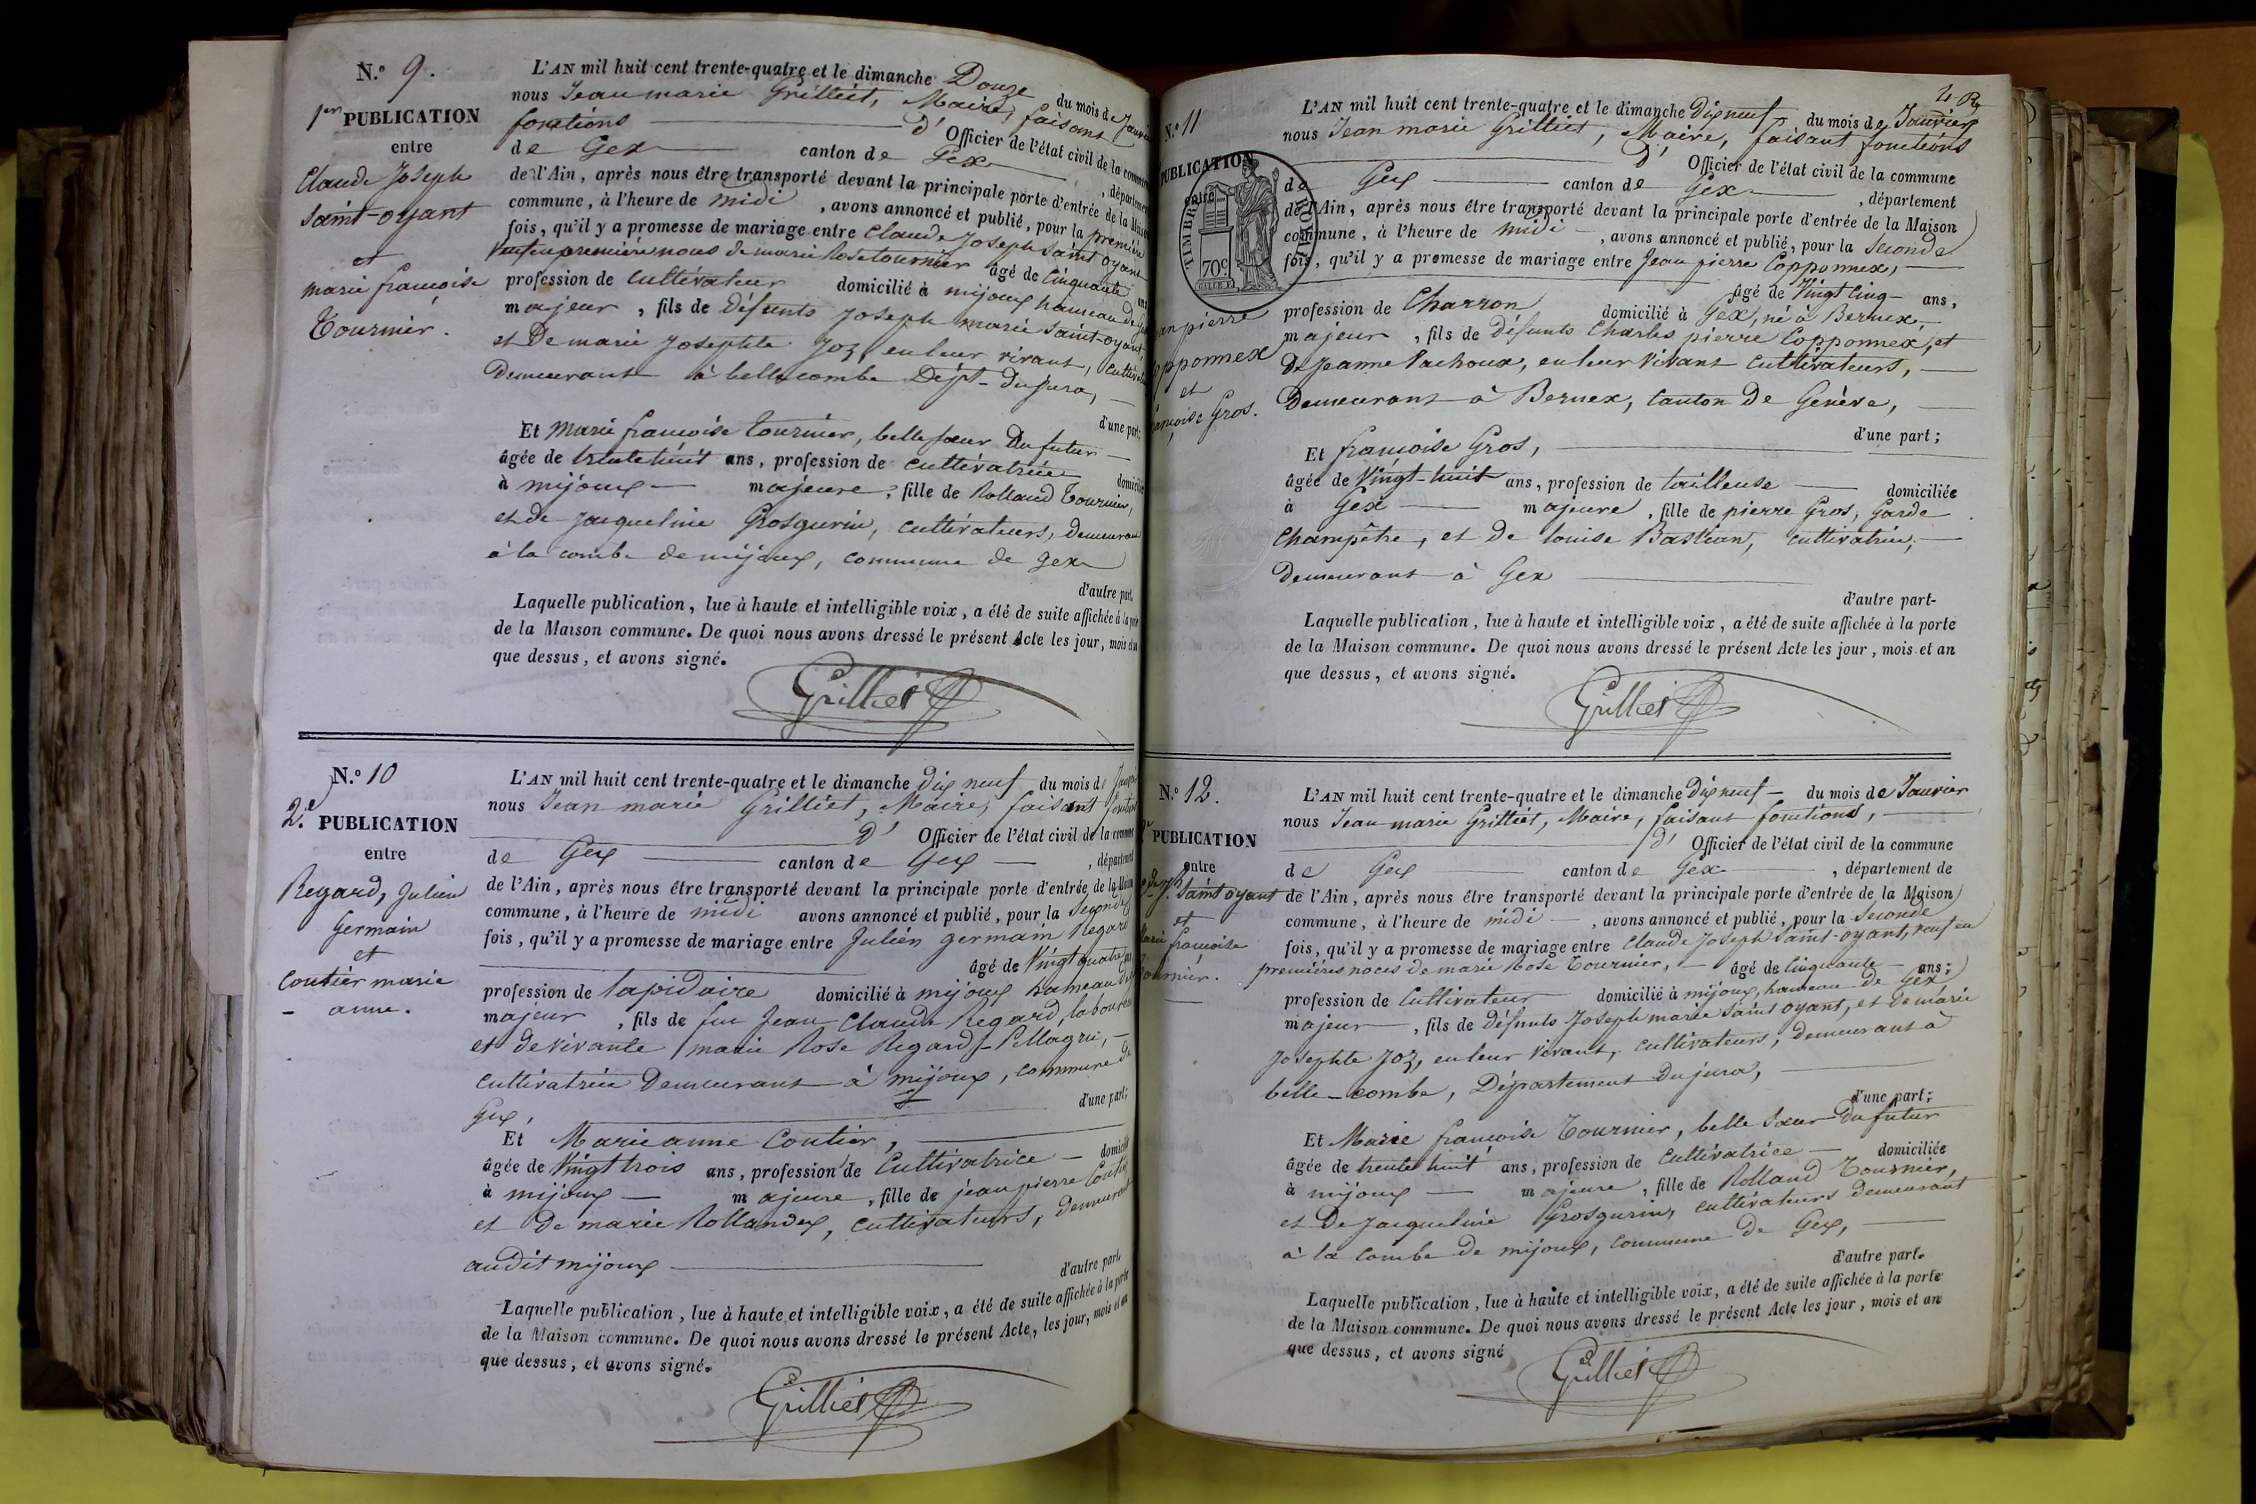 N.° 9.
1er PUBLICATION
entre
Claude Joseph
Saint-oyant
et
marie françoise
Tournier.
L'AN mil huit cent trente-quatre et le dimanche Douze du mois de Janvier
nous Jean marie Grilliet, Maire, faisant
fonctions d' Officier de l'état civil de la commune
de Gex canton de Gex , département
de l'Ain, après nous être transporté devant la principale porte d'entrée de la Maison
commune, à l'heure de midi , avons annoncé et publié, pour la première
fois, qu'il y a promesse de mariage entre Claude Joseph Saint oyant
veuf en première noces de marie Rose tournier âgé de Cinquante ans
profession de Cultivateur domicilié à mijoux hameau de Gex
majeur , fils de Défunts Joseph marie Saint-oyant,
et De marie Josephte Joz, en leur vivant, Cultivateurs
Demeurant à bellecombe Dépt- Du Jura,
d'une part;
Et Marie françoise tournier, belle sœur Du futur
âgée de trente huit ans, profession de Cultivatrice domiciliée
à mijoux majeure, fille de Rolland Tournier,
et de Jacqueline Grosgurin, cultivateurs, Demeurant
à la combe de mijoux, commune de gex
d'autre part.
Laquelle publication, lue à haute et intelligible voix, a été de suite affichée à la porte
de la Maison commune. De quoi nous avons dressé le présent Acte les jour, mois et an
que dessus, et avons signé.
Grilliet
N.° 10
2.e PUBLICATION
entre
Regard, Julien
Germain
et
Coutier marie
- anne.
L'AN mil huit cent trente-quatre et le dimanche Dix neuf du mois de Janvier
nous Jean marie Grilliet, Maire, faisant fonctions
d' Officier de l'état civil de la commune
de Gex canton de Gex , département
de l'Ain, après nous être transporté devant la principale porte d'entrée de la Maison
commune, à l'heure de midi avons annoncé et publié, pour la Seconde
fois, qu'il y a promesse de mariage entre Julien germain Regard
âgé de Vingt quatre ans
profession de lapidaire domicilié à mijoux hameau de
majeur , fils de feu Jean Claude Regard, laboureur
et de vivante marie Rose Regard-Pellagrie,
cultivatrice Demeurant à mijoux, commune De
Gex, d'une part;
Et Marie anne Coutier,
âgée de Vingt trois ans, profession de Cultivatrice domiciliée
à mijoux majeure, fille de jean pierre Coutier
et De marie Rollandex, cultivateurs, Demeurant
audit mijoux
d'autre part.
Laquelle publication, lue à haute et intelligible voix, a été de suite affichée à la porte
de la Maison commune. De quoi nous avons dressé le présent Acte, les jour, mois et an
que dessus, et avons signé.
Grilliet
N.° 11
PUBLICATION
entre
TIMBRE ROYAL
70c
pierre
opponnex
et
Gros.
L'AN mil huit cent trente-quatre et le dimanche Dix neuf du mois de Janvier
nous Jean marie Grilliet, Maire, faisant fonctions
d' Officier de l'état civil de la commune
de Gex canton de Gex , département
de l'Ain, après nous être transporté devant la principale porte d'entrée de la Maison
commune, à l'heure de midi , avons annoncé et publié, pour la Seconde
fois, qu'il y a promesse de mariage entre Jean pierre Copponnex,
âgé de Vingt cinq ans,
profession de Charron domicilié à Gex, né à Bernex,
majeur , fils de Défunts Charles pierre Copponnex, et
De Jeanne Vachoux, en leur vivant Cultivateurs,
Demeurant à Bernex, Canton De Genève,
d'une part;
Et françoise Gros,
âgée de Vingt-huit ans, profession de tailleuse domiciliée
à Gex majeure, fille de pierre Gros, Garde
Champêtre, et De louise Bastian, cultivatrice,
Demeurant à Gex
d'autre part-
Laquelle publication, lue à haute et intelligible voix, a été de suite affichée à la porte
de la Maison commune. De quoi nous avons dressé le présent Acte les jour, mois et an
que dessus, et avons signé.
Grilliet
N.° 12.
PUBLICATION
entre
J. Saint oyant
et
Marie françoise
Tournier.
L'AN mil huit cent trente-quatre et le dimanche Dix neuf du mois de Janvier
nous Jean marie Grilliet, Maire, faisant fonctions,
d' Officier de l'état civil de la commune
de Gex canton de Gex , département de
de l'Ain, après nous être transporté devant la principale porte d'entrée de la Maison
commune, à l'heure de midi , avons annoncé et publié, pour la Seconde
fois, qu'il y a promesse de mariage entre Claude Joseph Saint-oyant, veuf en
premières noces de marie Rose Tournier, âgé de Cinquante ans;
profession de Cultivateur domicilié à mijoux, hameau de Gex
majeur , fils de Défunts Joseph marie Saint oyant, et de marie
Josephte Joz, en leur vivant, cultivateurs, demeurant à
belle-combe, Département Du jura,
d'une part;
Et Marie françoise Tournier, belle sœur Du futur
âgée de trente huit ans, profession de Cultivatrice domiciliée
à mijoux majeure, fille de Rolland Tournier,
et De Jacqueline Grosgurin, cultivateurs demeurant
à la combe de mijoux, commune De Gex,
d'autre part.
Laquelle publication, lue à haute et intelligible voix, a été de suite affichée à la porte
de la Maison commune. De quoi nous avons dressé le présent Acte les jour, mois et an
que dessus, et avons signé
Grilliet